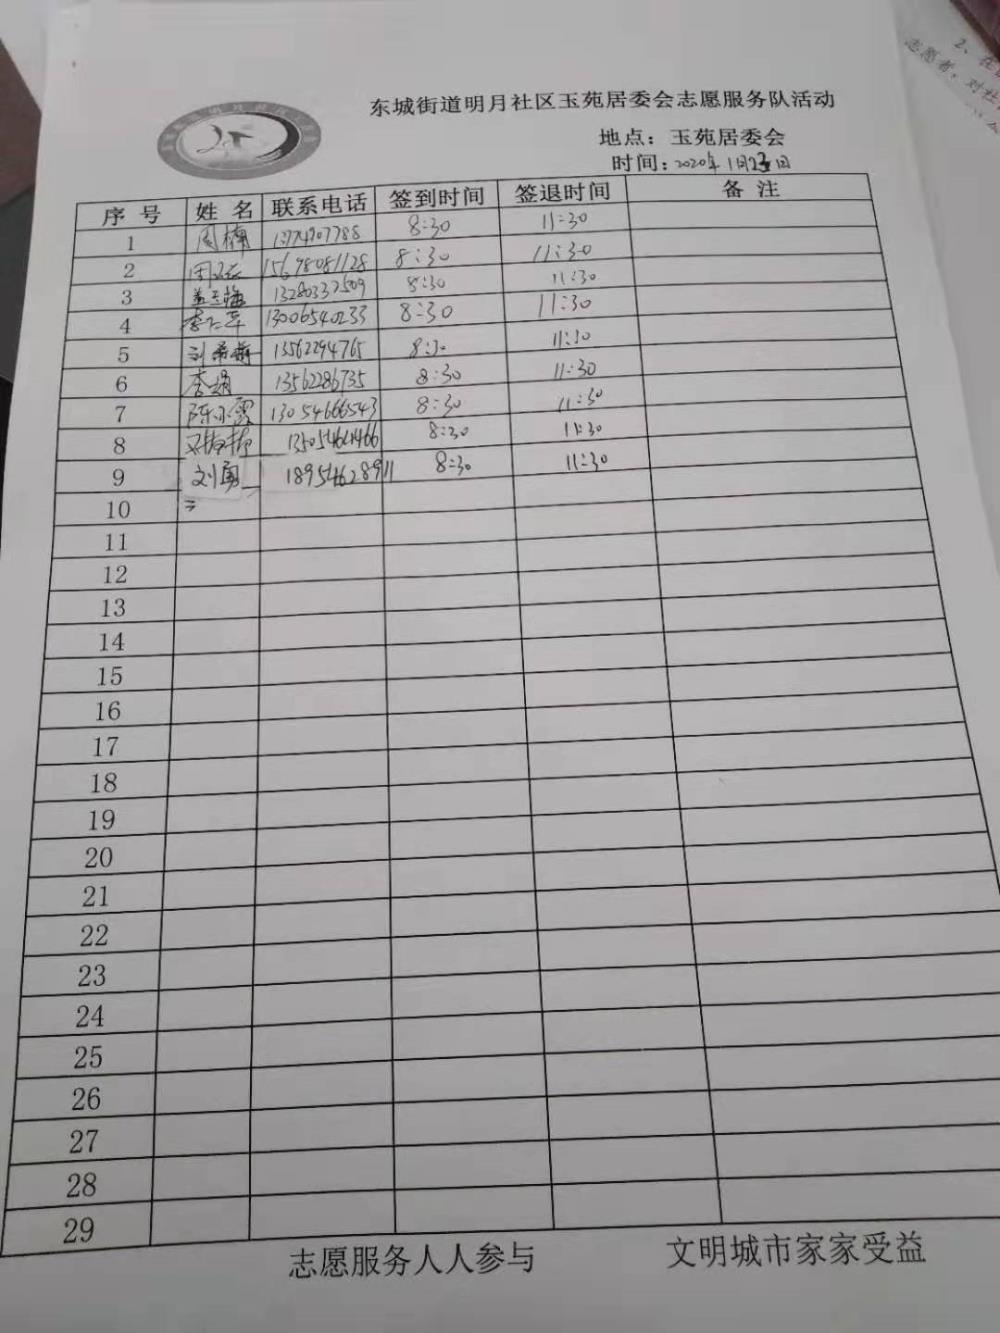 东城街道明月社区玉苑居委会志愿服务队活动
地点：玉苑居委会
时间：2020年1月23日
序号 姓名 联系电话 签到时间 签退时间 备注
1 周楠 8:30 11:30
2 15698081128 8:30 11:30
3 13280332509 8:30 11:30
4 13006540233 8:30 11:30
5 13562294765 8:30 11:30
6 李娟 13562286735 8:30 11:30
7 13054666543 8:30 11:30
8 8:30 11:30
9 刘勇 18954628911 8:30 11:30
10
11
12
13
14
15
16
17
18
19
20
21
22
23
24
25
26
27
28
29
志愿服务人人参与 文明城市家家受益
2、在
志愿者，对社